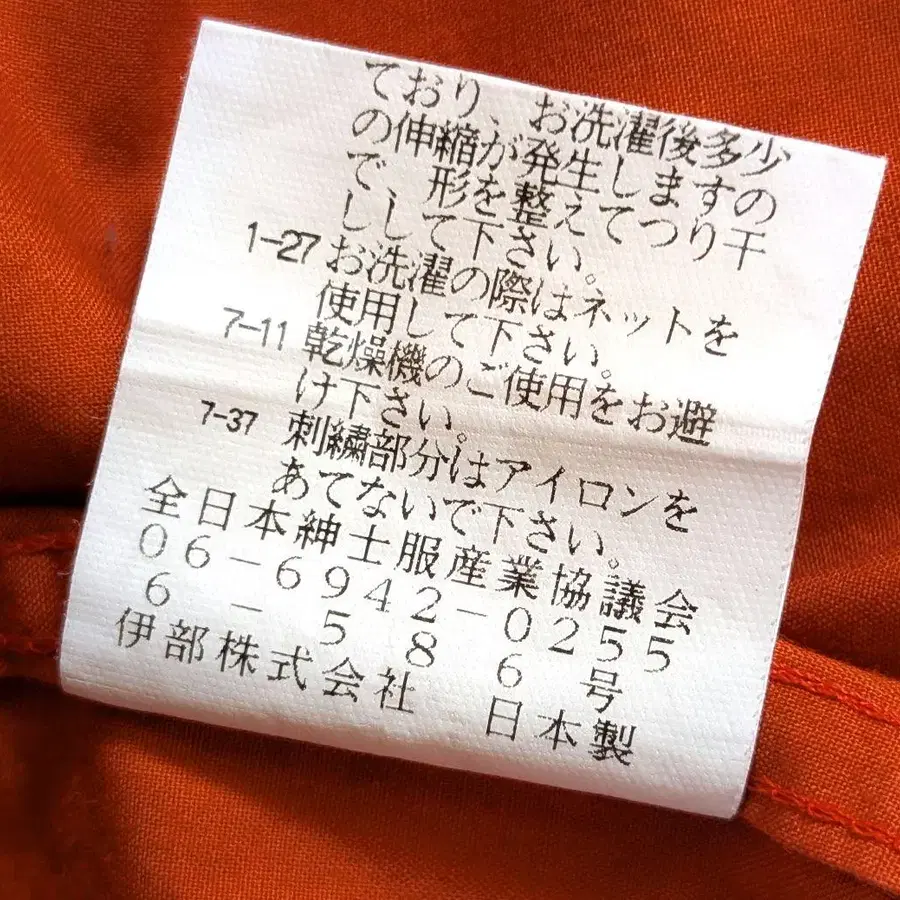 ており、お洗濯後多少
の伸縮が発生しますの
で、形を整えてつり干
しして下さい。
1-27 お洗濯の際はネットを
使用して下さい。
7-11 乾燥機のご使用をお避
け下さい。
7-37 刺繍部分はアイロンを
あてないで下さい。
全日本紳士服産業協議会
06－6942－0255
6－586号
伊部株式会社 日本製